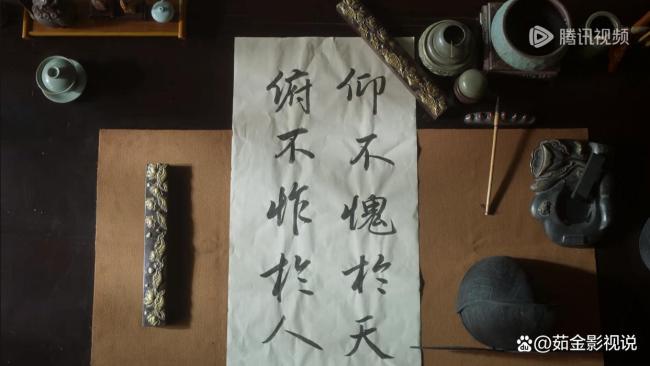 仰不愧於天
俯不怍於人
腾讯视频
@茹金影视说